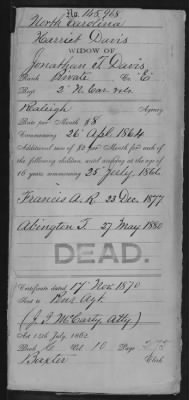 No. 145,968
North Carolina
Harriet Davis
WIDOW OF
Jonathan T. Davis,
Rank Private Co. "E"
Reg. 2" N. Car. vols.
Raleigh Agency
Rate per Month $8
Commencing 26 Apl. 1864
Additional sum of $2 per Month for each of
the following children until arriving at the age of
16 years commencing 25 July, 1866
Francis A. R. 23 Dec. 1877
Abington T. 27 May 1880
DEAD.
Certificate dated 17 Nov. 1870
Sent to Pens. Agt.
(J. J. McCarty, Atty)
Act 14th July, 1862
Book G Vol. 10 Page 275
Baxter Clerk